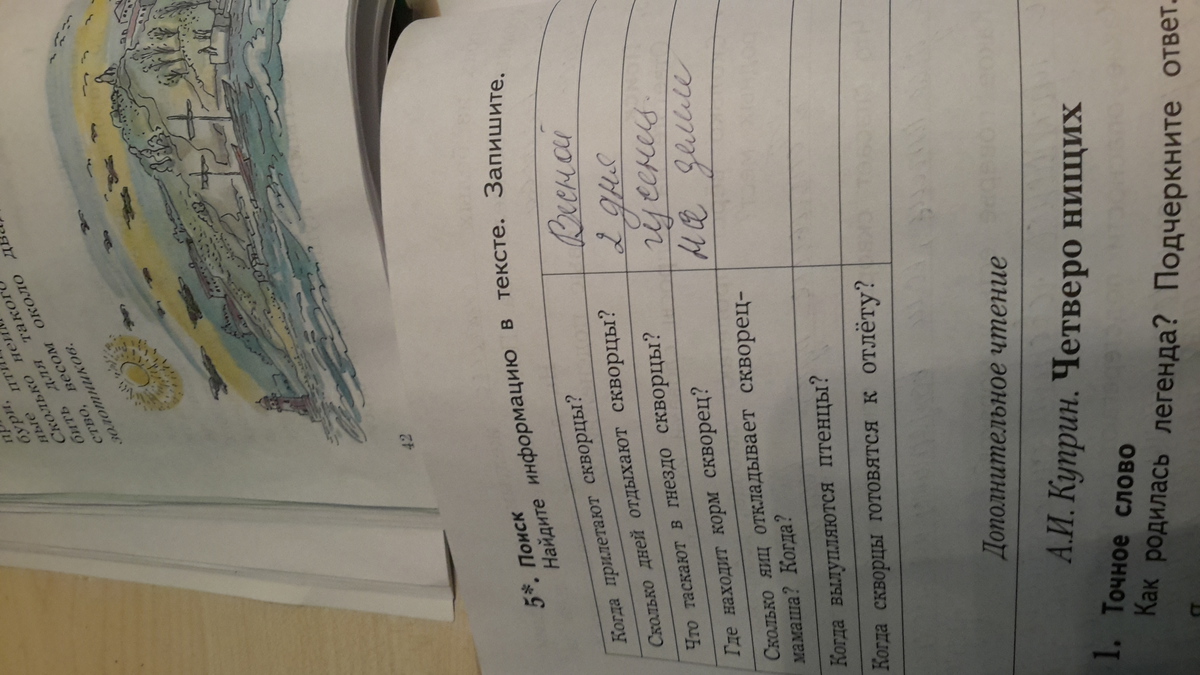 бить весом
ство, золотников.
42
5*. Поиск
Найдите информацию в тексте. Запишите.
Когда прилетают скворцы? Весной
Сколько дней отдыхают скворцы? 2 дня
Что таскают в гнездо скворцы? гусениц.
Где находит корм скворец? на земле
Сколько яиц откладывает скворец-
мамаша? Когда?
Когда вылупляются птенцы?
Когда скворцы готовятся к отлёту?
Дополнительное чтение
А.И. Куприн. Четверо нищих
1. Точное слово
Как родилась легенда? Подчеркните ответ.